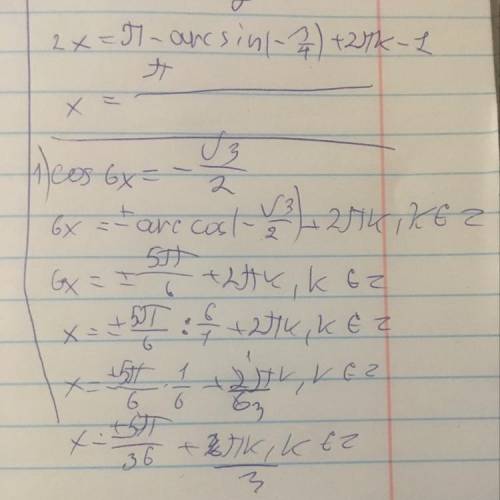 2x = π - arcsin(-3/4) + 2πk - 1
π
x =
1) cos 6x = -√3/2
6x = ± arccos(-√3/2) + 2πk, k ∈ z
6x = ± 5π/6 + 2πk, k ∈ z
x = ± 5π/6 : 6/1 + 2πk, k ∈ z
x = ±5π/6 · 1/6 + 2πk/63, k ∈ z
x = ±5π/36 + πk/3, k ∈ z